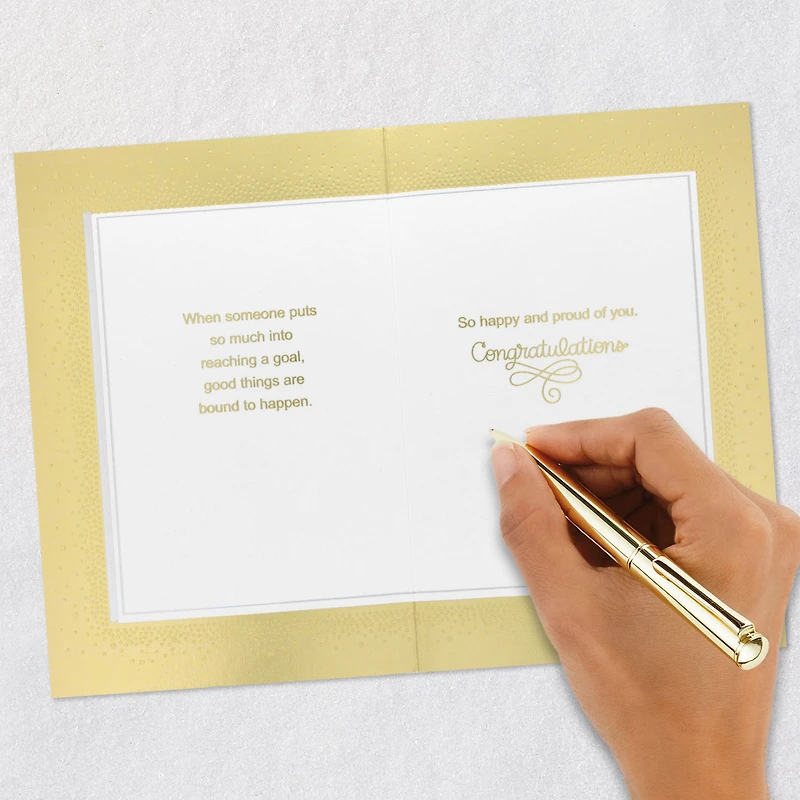 When someone puts
so much into
reaching a goal,
good things are
bound to happen.
So happy and proud of you.
Congratulations